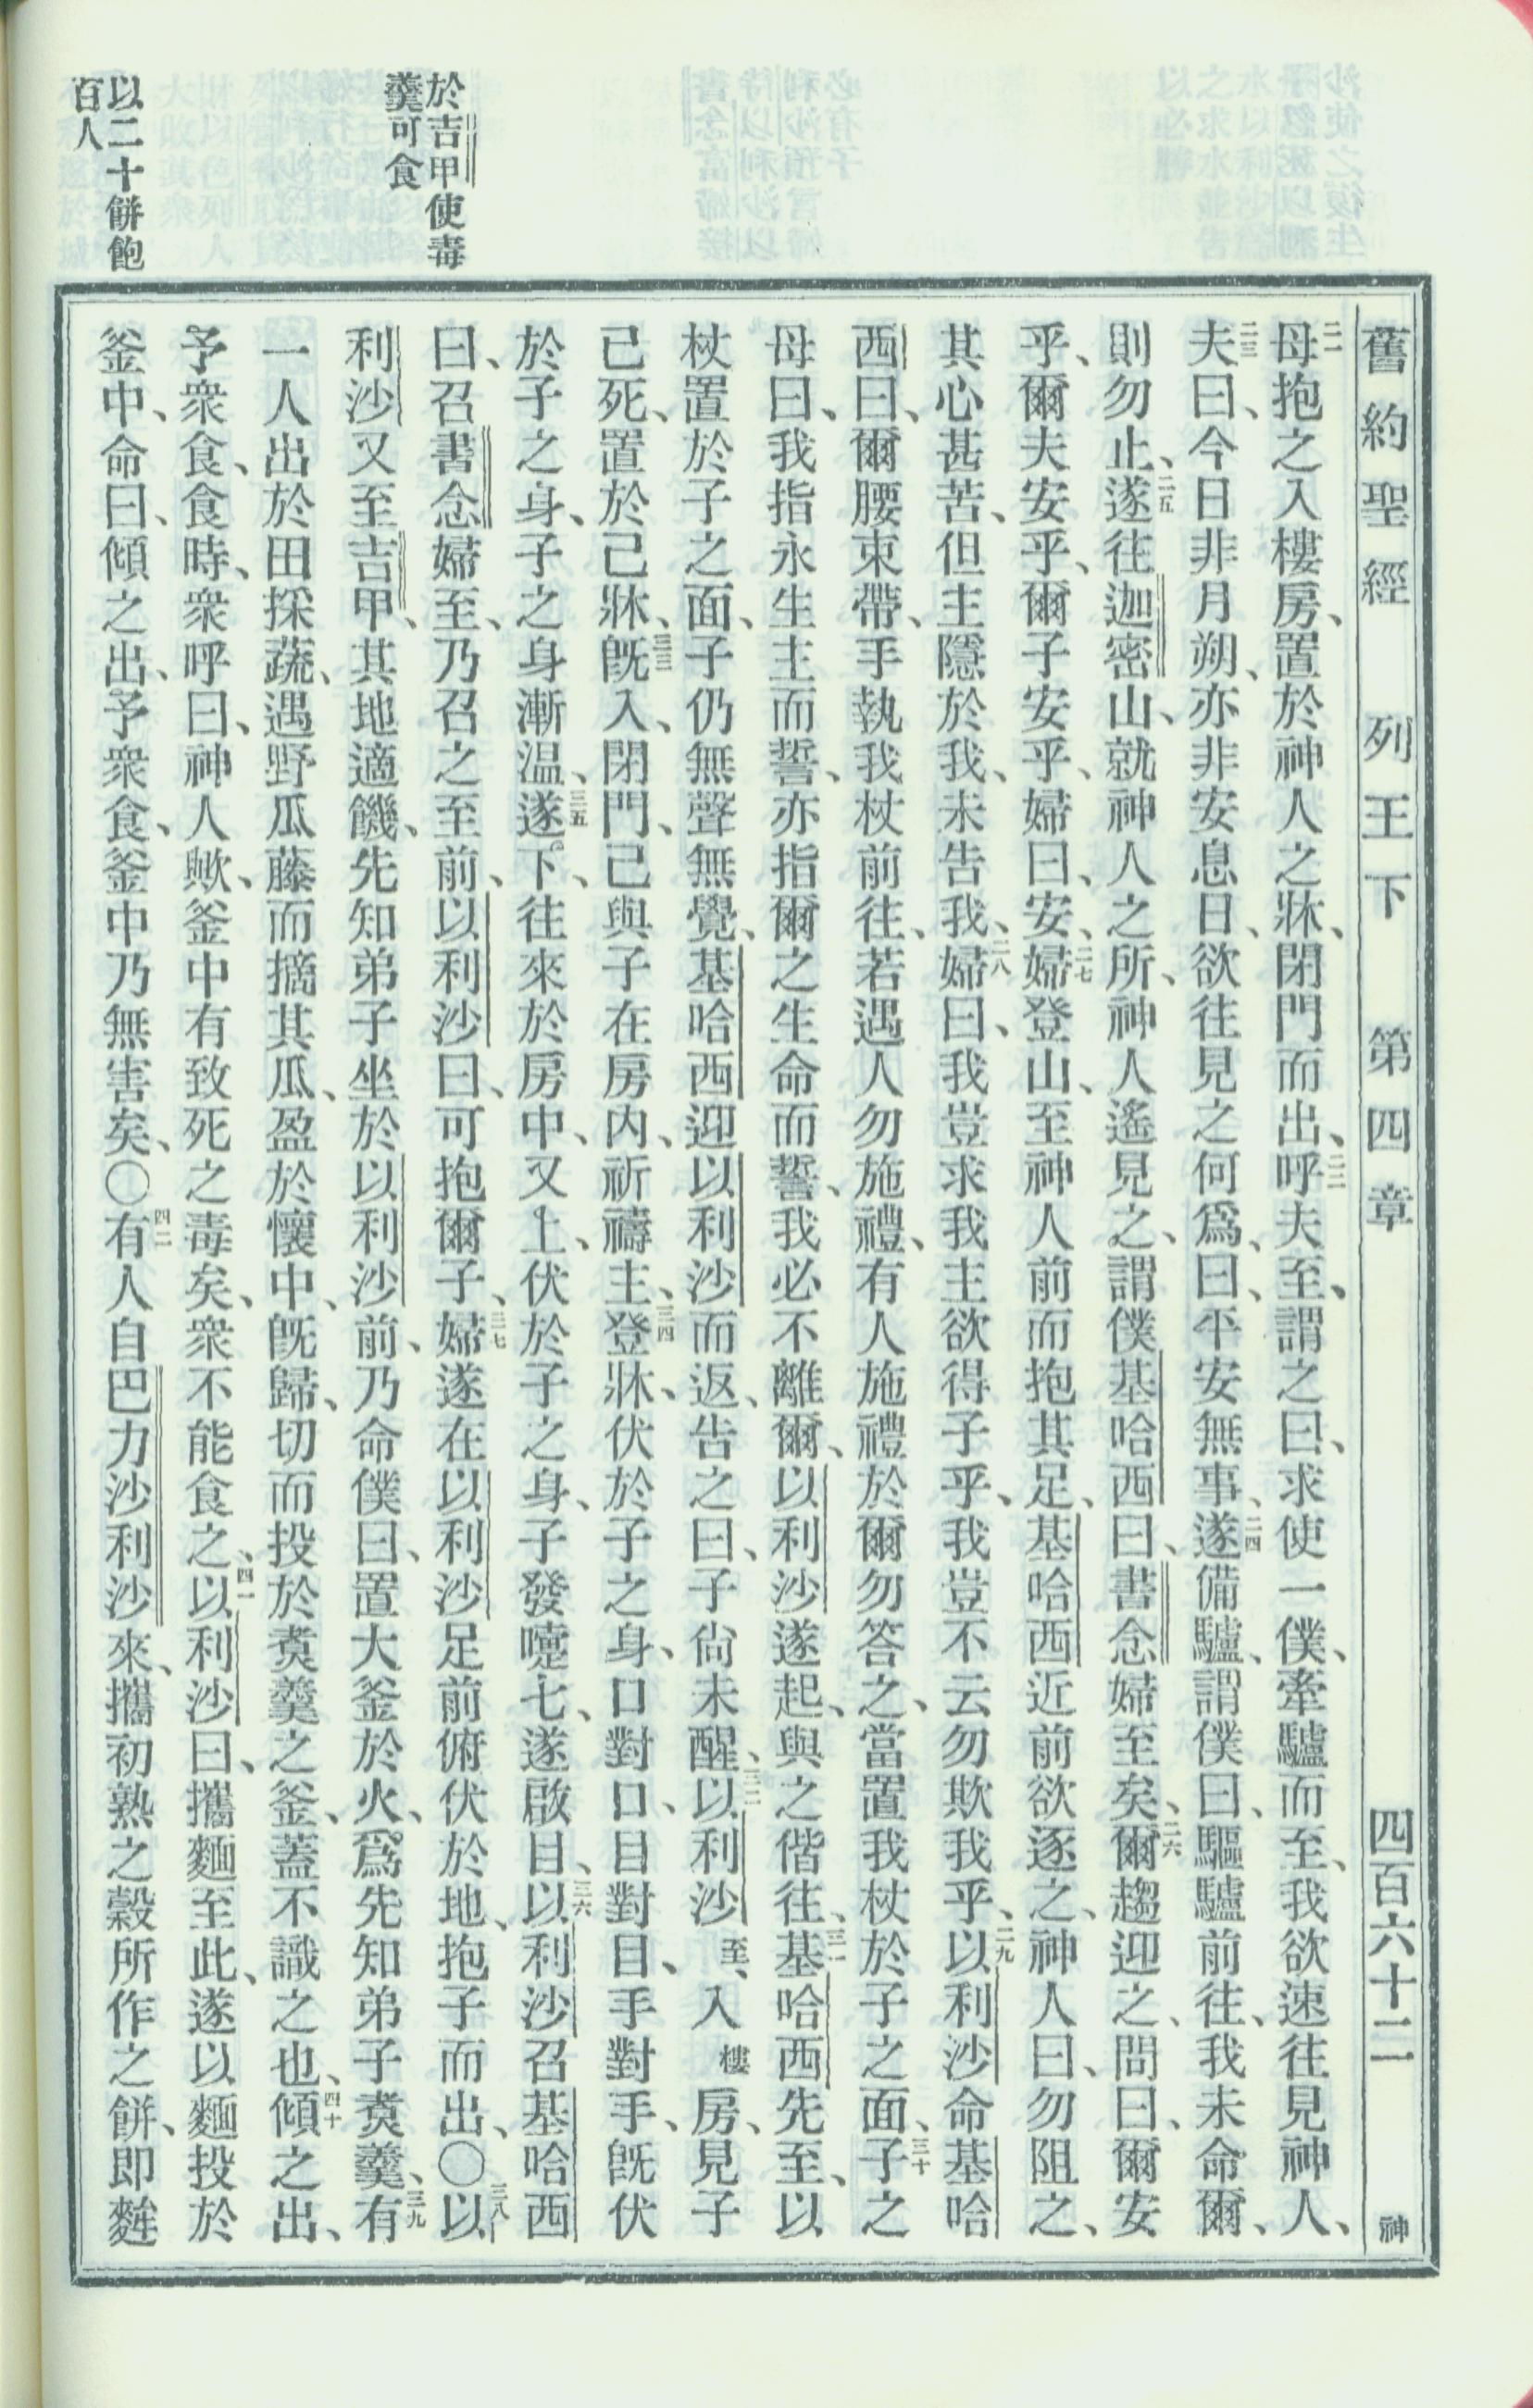 舊約聖經 列王下 第四章 四百六十二 神
二一母抱之入樓房、置於神人之牀、閉門而出、二二呼夫至、謂之曰、求使一僕、牽驢而至、我欲速往見神人、
二三夫曰、今日非月朔、亦非安息日、欲往見之何爲、曰、平安無事、二四遂備驢、謂僕曰、驅驢前往、我未命爾、
則勿止、二五遂往迦密山、就神人之所、神人遙見之、謂僕基哈西曰、書念婦至矣、二六爾趨迎之、問曰、爾安
乎、爾夫安乎、爾子安乎、婦曰、安、二七婦登山、至神人前而抱其足、基哈西近前欲逐之、神人曰、勿阻之、
其心甚苦、但主隱於我、未告我、二八婦曰、我豈求我主欲得子乎、我豈不云勿欺我乎、二九以利沙命基哈
西曰、爾腰束帶、手執我杖前往、若遇人勿施禮、有人施禮於爾勿答之、當置我杖於子之面、三十子之
母曰、我指永生主而誓、亦指爾之生命而誓、我必不離爾、以利沙遂起、與之偕往、三一基哈西先至、以
杖置於子之面、子仍無聲無覺、基哈西迎以利沙而返、告之曰、子尚未醒、三二以利沙至、入樓房、見子
已死、置於己牀、三三旣入、閉門、己與子在房內、祈禱主、三四登牀、伏於子之身、口對口、目對目、手對手、旣伏
於子之身、子之身漸温、三五遂下、往來於房中、又上、伏於子之身、子發嚏七、遂啟目、三六以利沙召基哈西
曰、召書念婦至、乃召之至前、以利沙曰、可抱爾子、三七婦遂在以利沙足前俯伏於地、抱子而出、○三八以
利沙又至吉甲、其地適饑、先知弟子坐於以利沙前、乃命僕曰、置大釜於火、爲先知弟子煑羹、三九有
一人出於田採蔬、遇野瓜藤而摘其瓜、盈於懷中、旣歸、切而投於煑羹之釜、蓋不識之也、四十傾之出、
予衆食、食時、衆呼曰、神人歟、釜中有致死之毒矣、衆不能食之、四一以利沙曰、攜麵至此、遂以麵投於
釜中、命曰、傾之出、予衆食、釜中乃無害矣、○四二有人自巴力沙利沙來、攜初熟之穀所作之餅、卽麰
於吉甲使毒
羹可食
以二十餅飽
百人